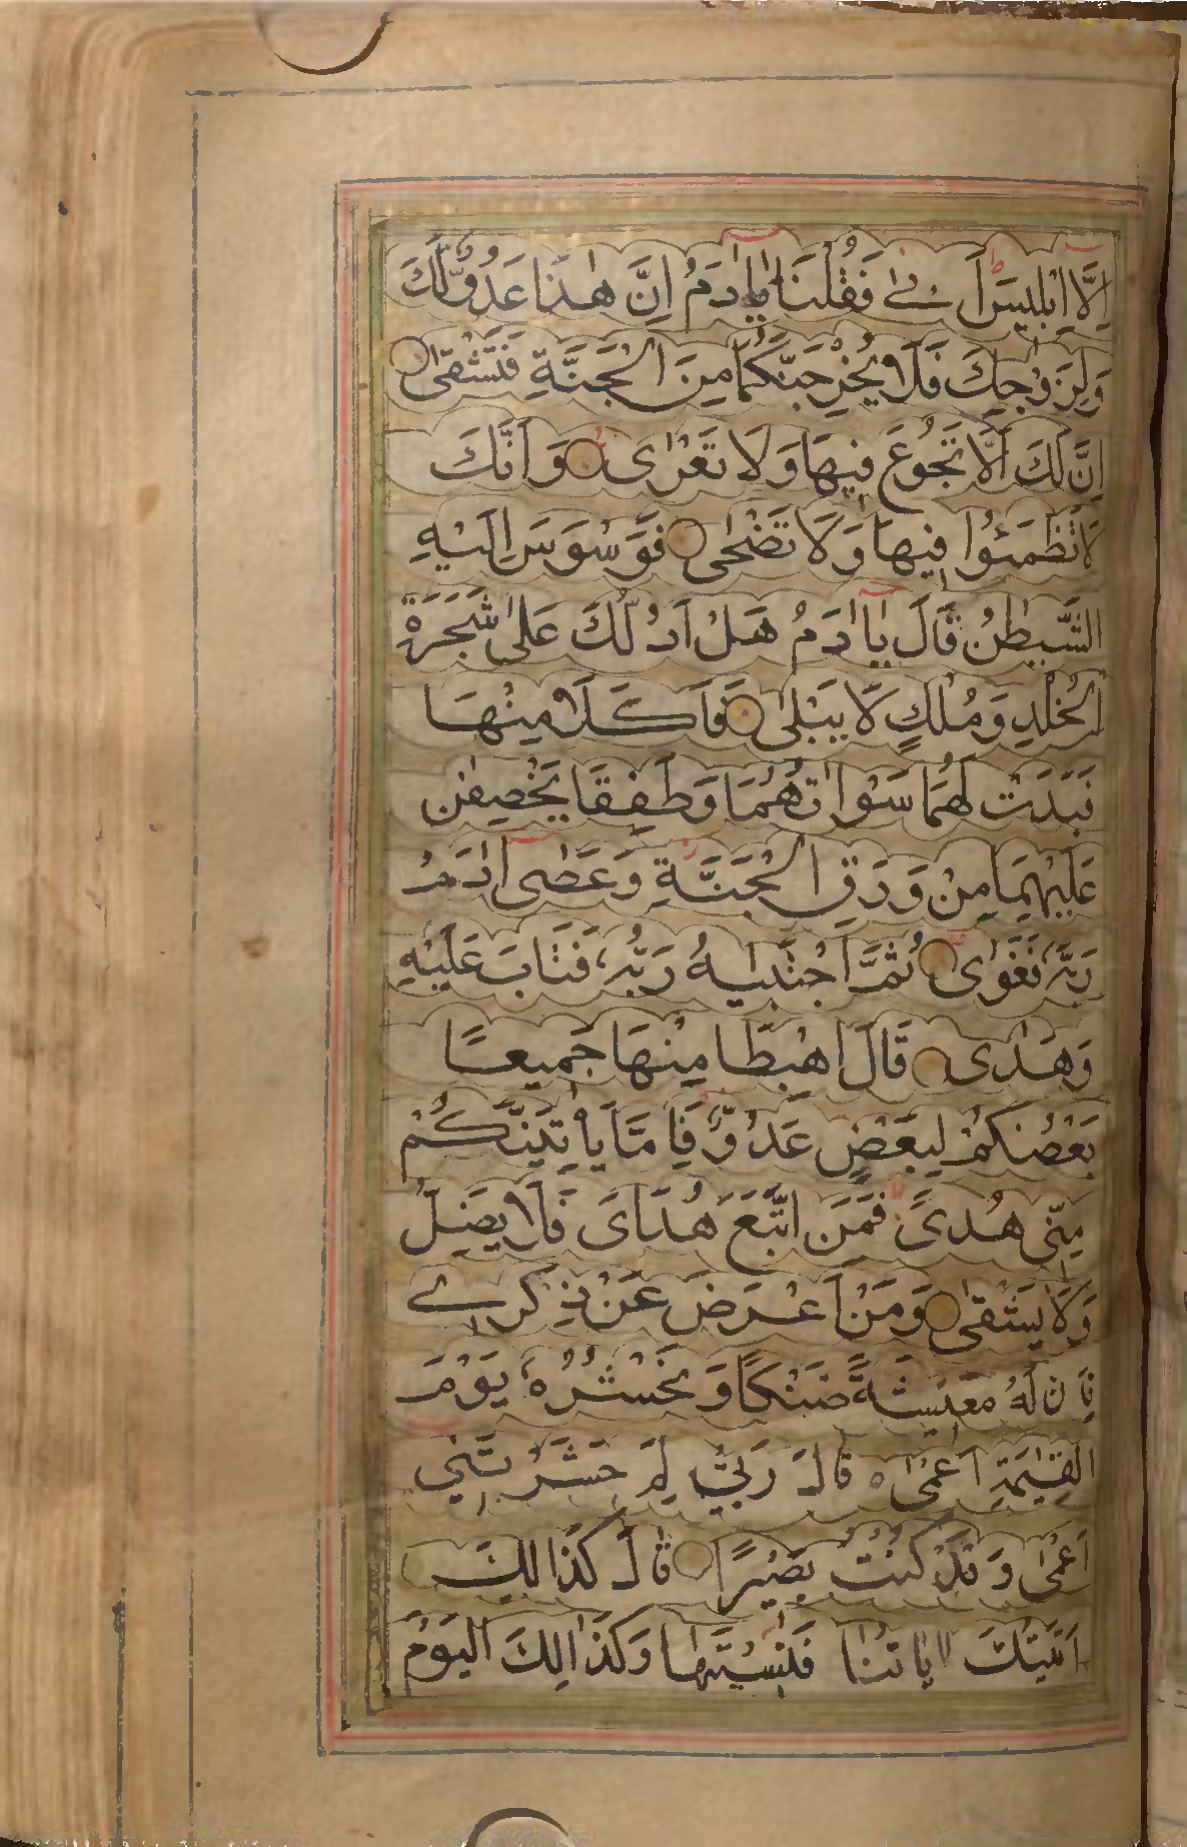 اِلَّا اِبْلِيسَ اَبٰى فَقُلْنَا يَا اٰدَمُ اِنَّ هٰذَا عَدُوٌّ لَكَ
وَلِزَوْجِكَ فَلَا يُخْرِجَنَّكُمَا مِنَ الْجَنَّةِ فَتَشْقٰى
اِنَّ لَكَ اَلَّا تَجُوعَ فِيهَا وَلَا تَعْرٰى وَاَنَّكَ
لَا تَظْمَئُوا فِيهَا وَلَا تَضْحٰى فَوَسْوَسَ اِلَيْهِ
الشَّيْطٰنُ قَالَ يَا اٰدَمُ هَلْ اَدُلُّكَ عَلٰى شَجَرَةِ
الْخُلْدِ وَمُلْكٍ لَا يَبْلٰى فَاَكَلَا مِنْهَا
فَبَدَتْ لَهُمَا سَوْاٰتُهُمَا وَطَفِقَا يَخْصِفٰنِ
عَلَيْهِمَا مِنْ وَرَقِ الْجَنَّةِ وَعَصٰى اٰدَمُ
رَبَّهُ فَغَوٰى ثُمَّ اجْتَبٰيهُ رَبُّهُ فَتَابَ عَلَيْهِ
وَهَدٰى قَالَ اهْبِطَا مِنْهَا جَمِيعًا
بَعْضُكُمْ لِبَعْضٍ عَدُوٌّ فَاِمَّا يَاْتِيَنَّكُمْ
مِنِّى هُدًى فَمَنِ اتَّبَعَ هُدَاىَ فَلَا يَضِلُّ
وَلَا يَشْقٰى وَمَنْ اَعْرَضَ عَنْ ذِكْرِى
فَاِنَّ لَهُ مَعِيشَةً ضَنْكًا وَنَحْشُرُهُ يَوْمَ
الْقِيٰمَةِ اَعْمٰى قَالَ رَبِّ لِمَ حَشَرْتَنِى
اَعْمٰى وَقَدْ كُنْتُ بَصِيرًا قَالَ كَذَالِكَ
اَتَتْكَ اٰيَاتُنَا فَنَسِيتَهَا وَكَذَالِكَ الْيَوْمَ